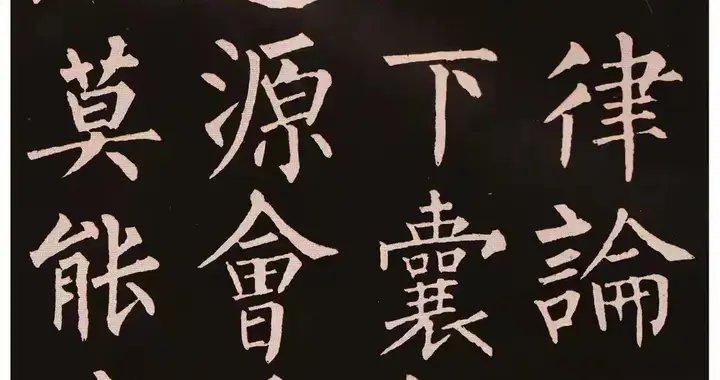 律論
下囊
源會
莫能